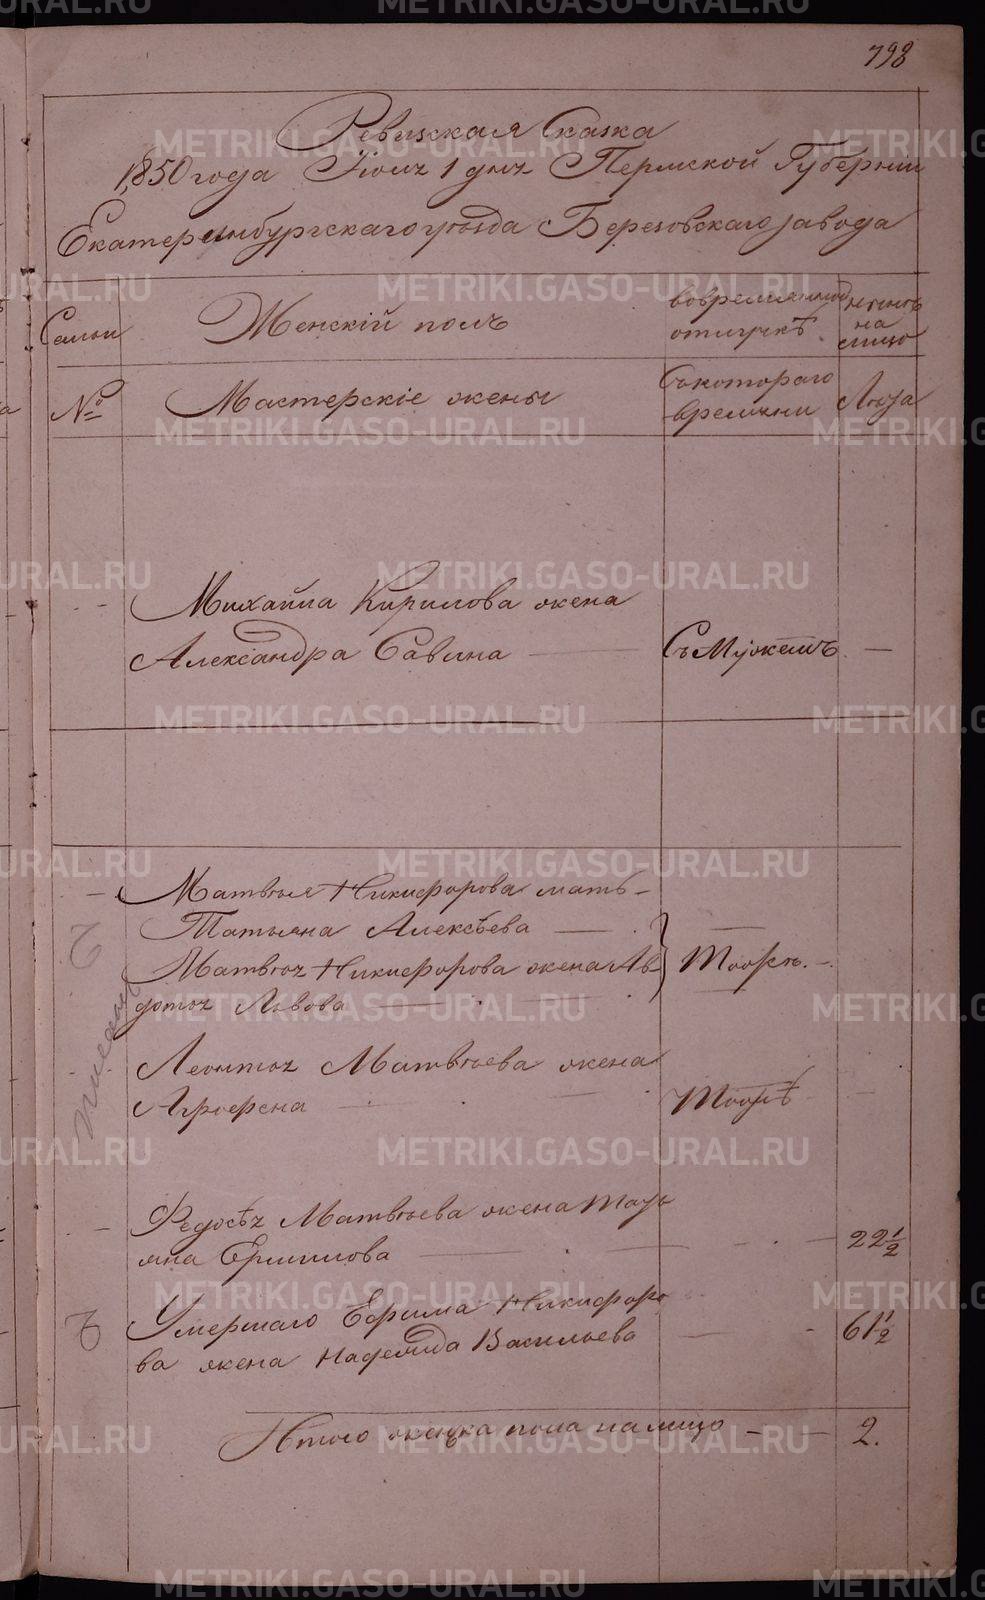 798
Ревизская Сказка
1850 года Июля 1 дня Пермской Губернии
Екатеринбургскаго уѣзда Березовскаго завода
Семьи
Женскій полъ
во временной
отлучкѣ
нынѣ
на
лицо
№
Мастерскіе жены
Съ котораго
времени
Лѣта
Михайла Кирилова жена
Александра Савина
Съ Мужемъ
Матвѣя Никифорова мать
Татьяна Алексѣева
Матвѣя Никифорова жена Ав
дотья Львова
Тоже
Леонтья Матвѣева жена
Агрофена
Тоже
Федосѣя Матвѣева жена Тать
яна Ермилова
22 1/2
Умершаго Ефима Никифоро
ва жена Надежда Васильева
61 1/2
Итого женска пола на лицо
2.
METRIKI.GASO-URAL.RU